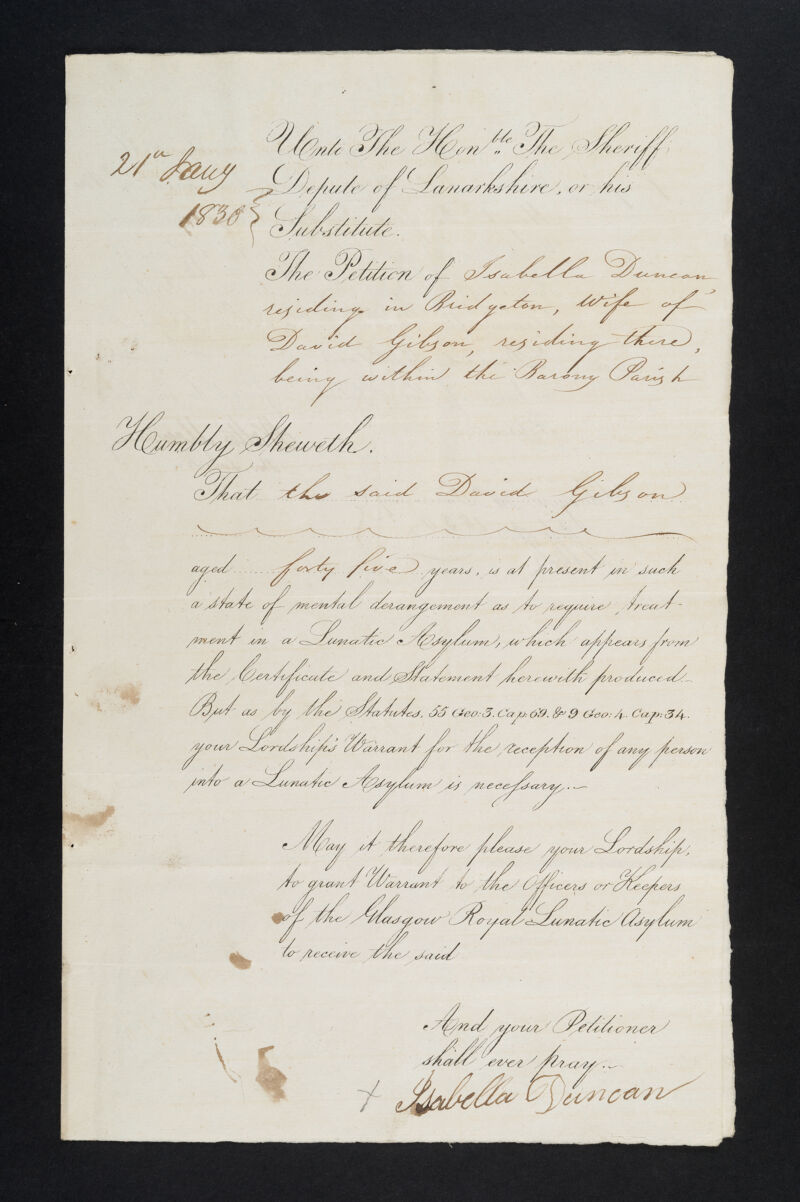 21st Jany
1830
Unto The Honble. The Sheriff
Depute of Lanarkshire, or his
Substitute.
The Petition of Isabella Duncan,
residing in Bridgeton, Wife of
David Gibson, residing there,
being within the Barony Parish
Humbly Sheweth.
That the said David Gibson
aged forty five years, is at present in such
a state of mental derangement as to require treat-
ment in a Lunatic Asylum, which appears from
the Certificate and Statement herewith produced.
But as by the Statutes, 55 Geo: 3. Cap: 69. & 9 Geo: 4. Cap: 34.
your Lordship's Warrant for the reception of any person
into a Lunatic Asylum is necessary.
May it therefore please your Lordship,
to grant Warrant to the Officers or Keepers
of the Glasgow Royal Lunatic Asylum
to receive the said
And your Petitioner
shall ever pray.
x Isabella Duncan